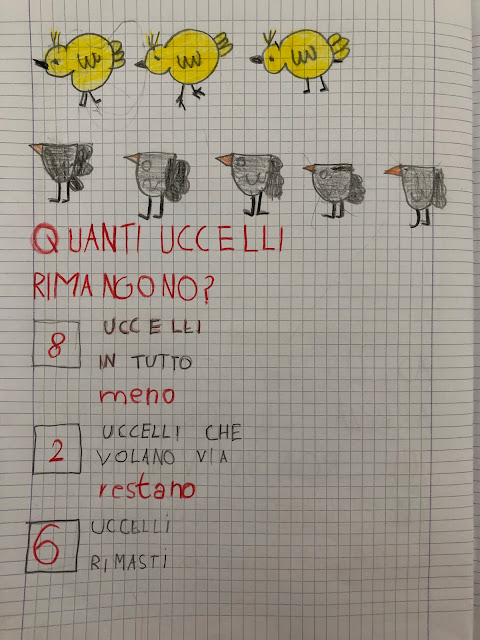 QUANTI UCCELLI
RIMANGONO?
8 UCCELLI
IN TUTTO
meno
2 UCCELLI CHE
VOLANO VIA
restano
6 UCCELLI
RIMASTI